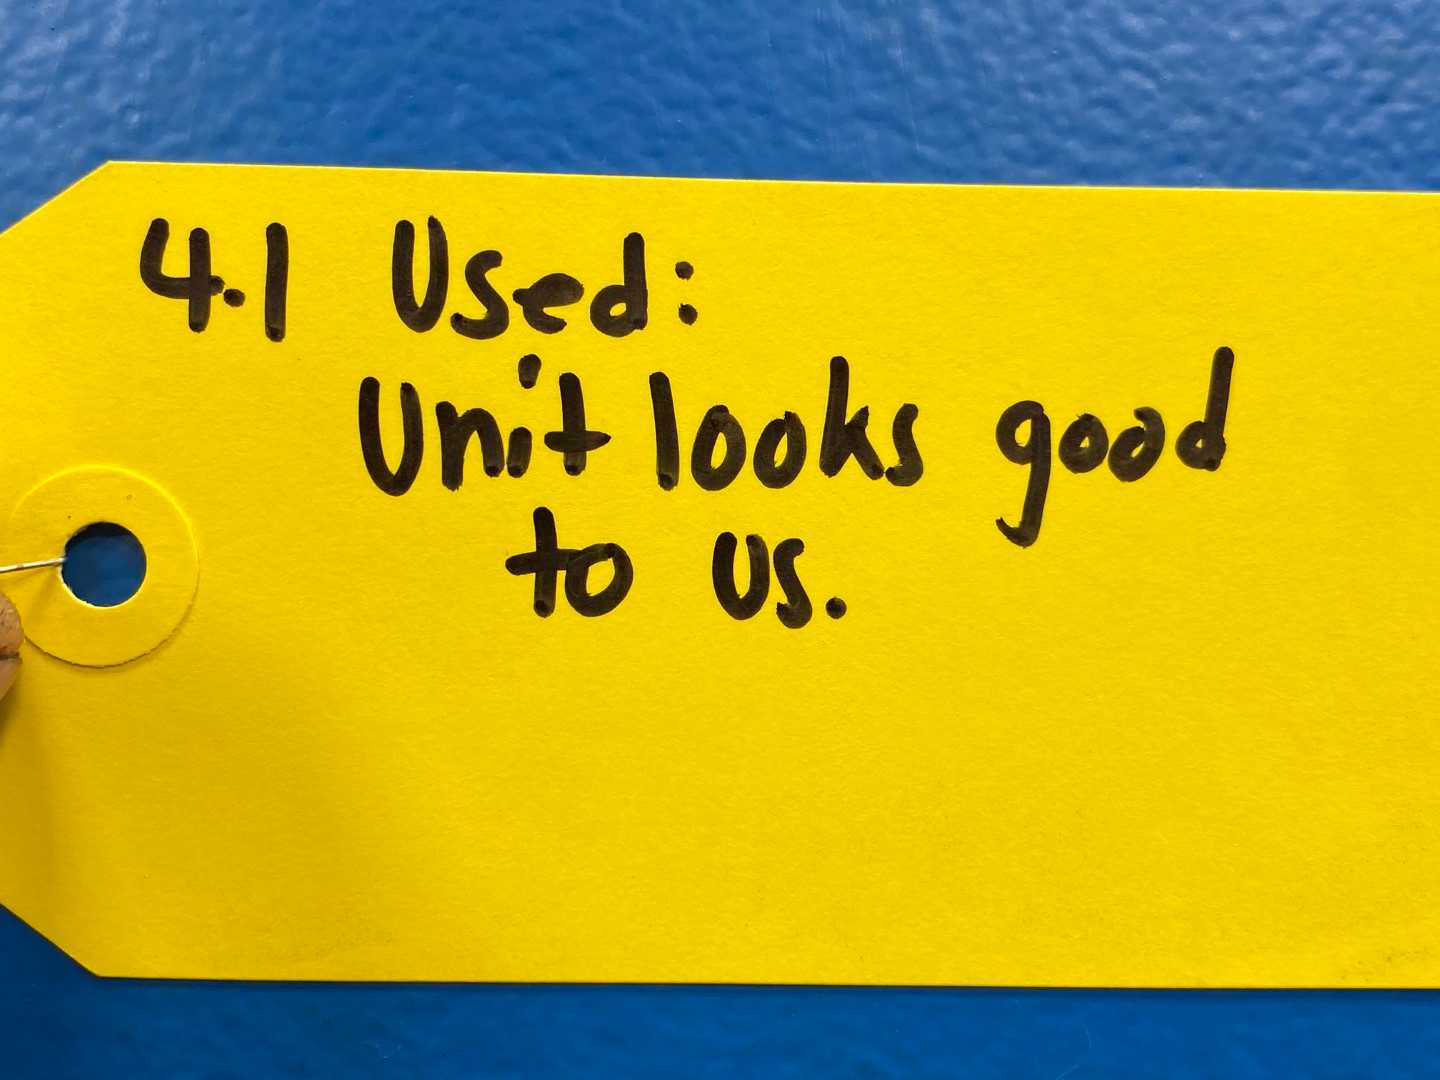 4.1 Used:
Unit looks good
to us.